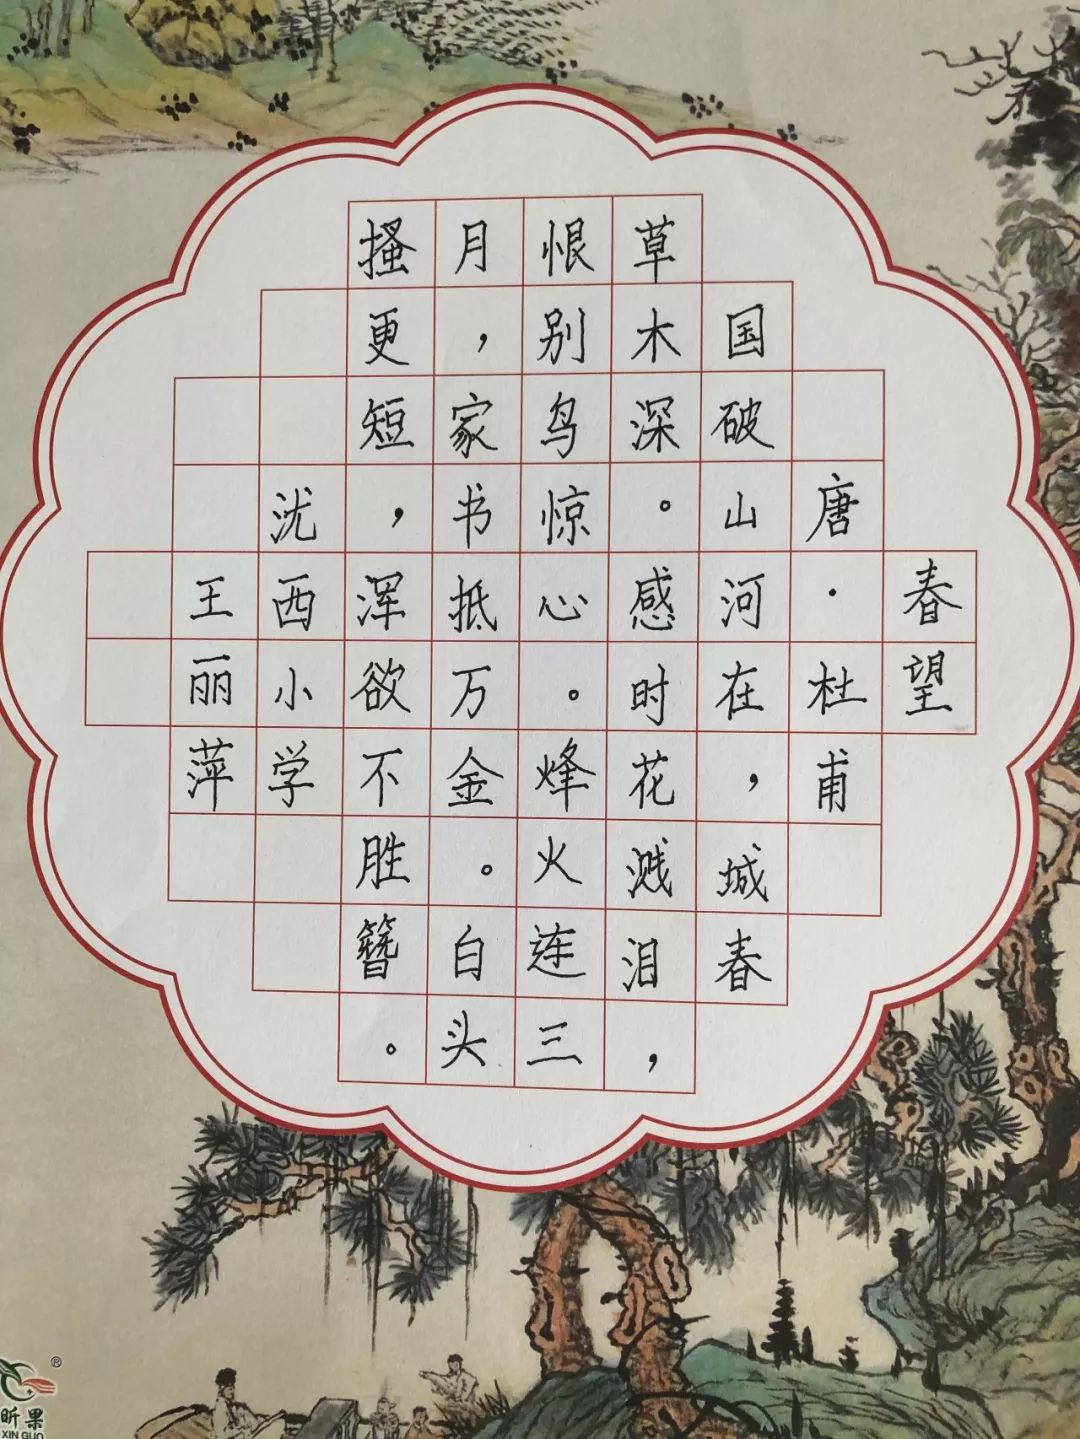 春望
唐·杜甫
国破山河在，城春
草木深。感时花溅泪，
恨别鸟惊心。烽火连三
月，家书抵万金。白头
搔更短，浑欲不胜簪。
沋西小学
王丽萍
®
昕果
XIN GUO